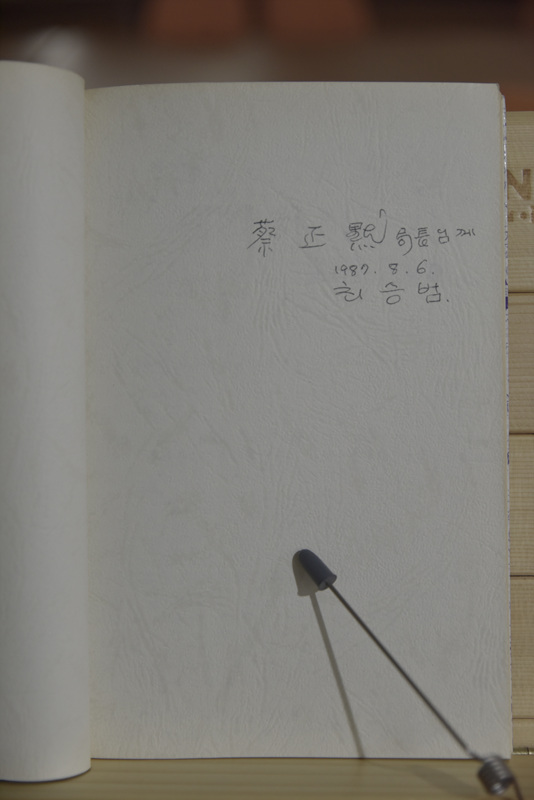 蔡正 局長님께
1987. 8. 6.
최승범.